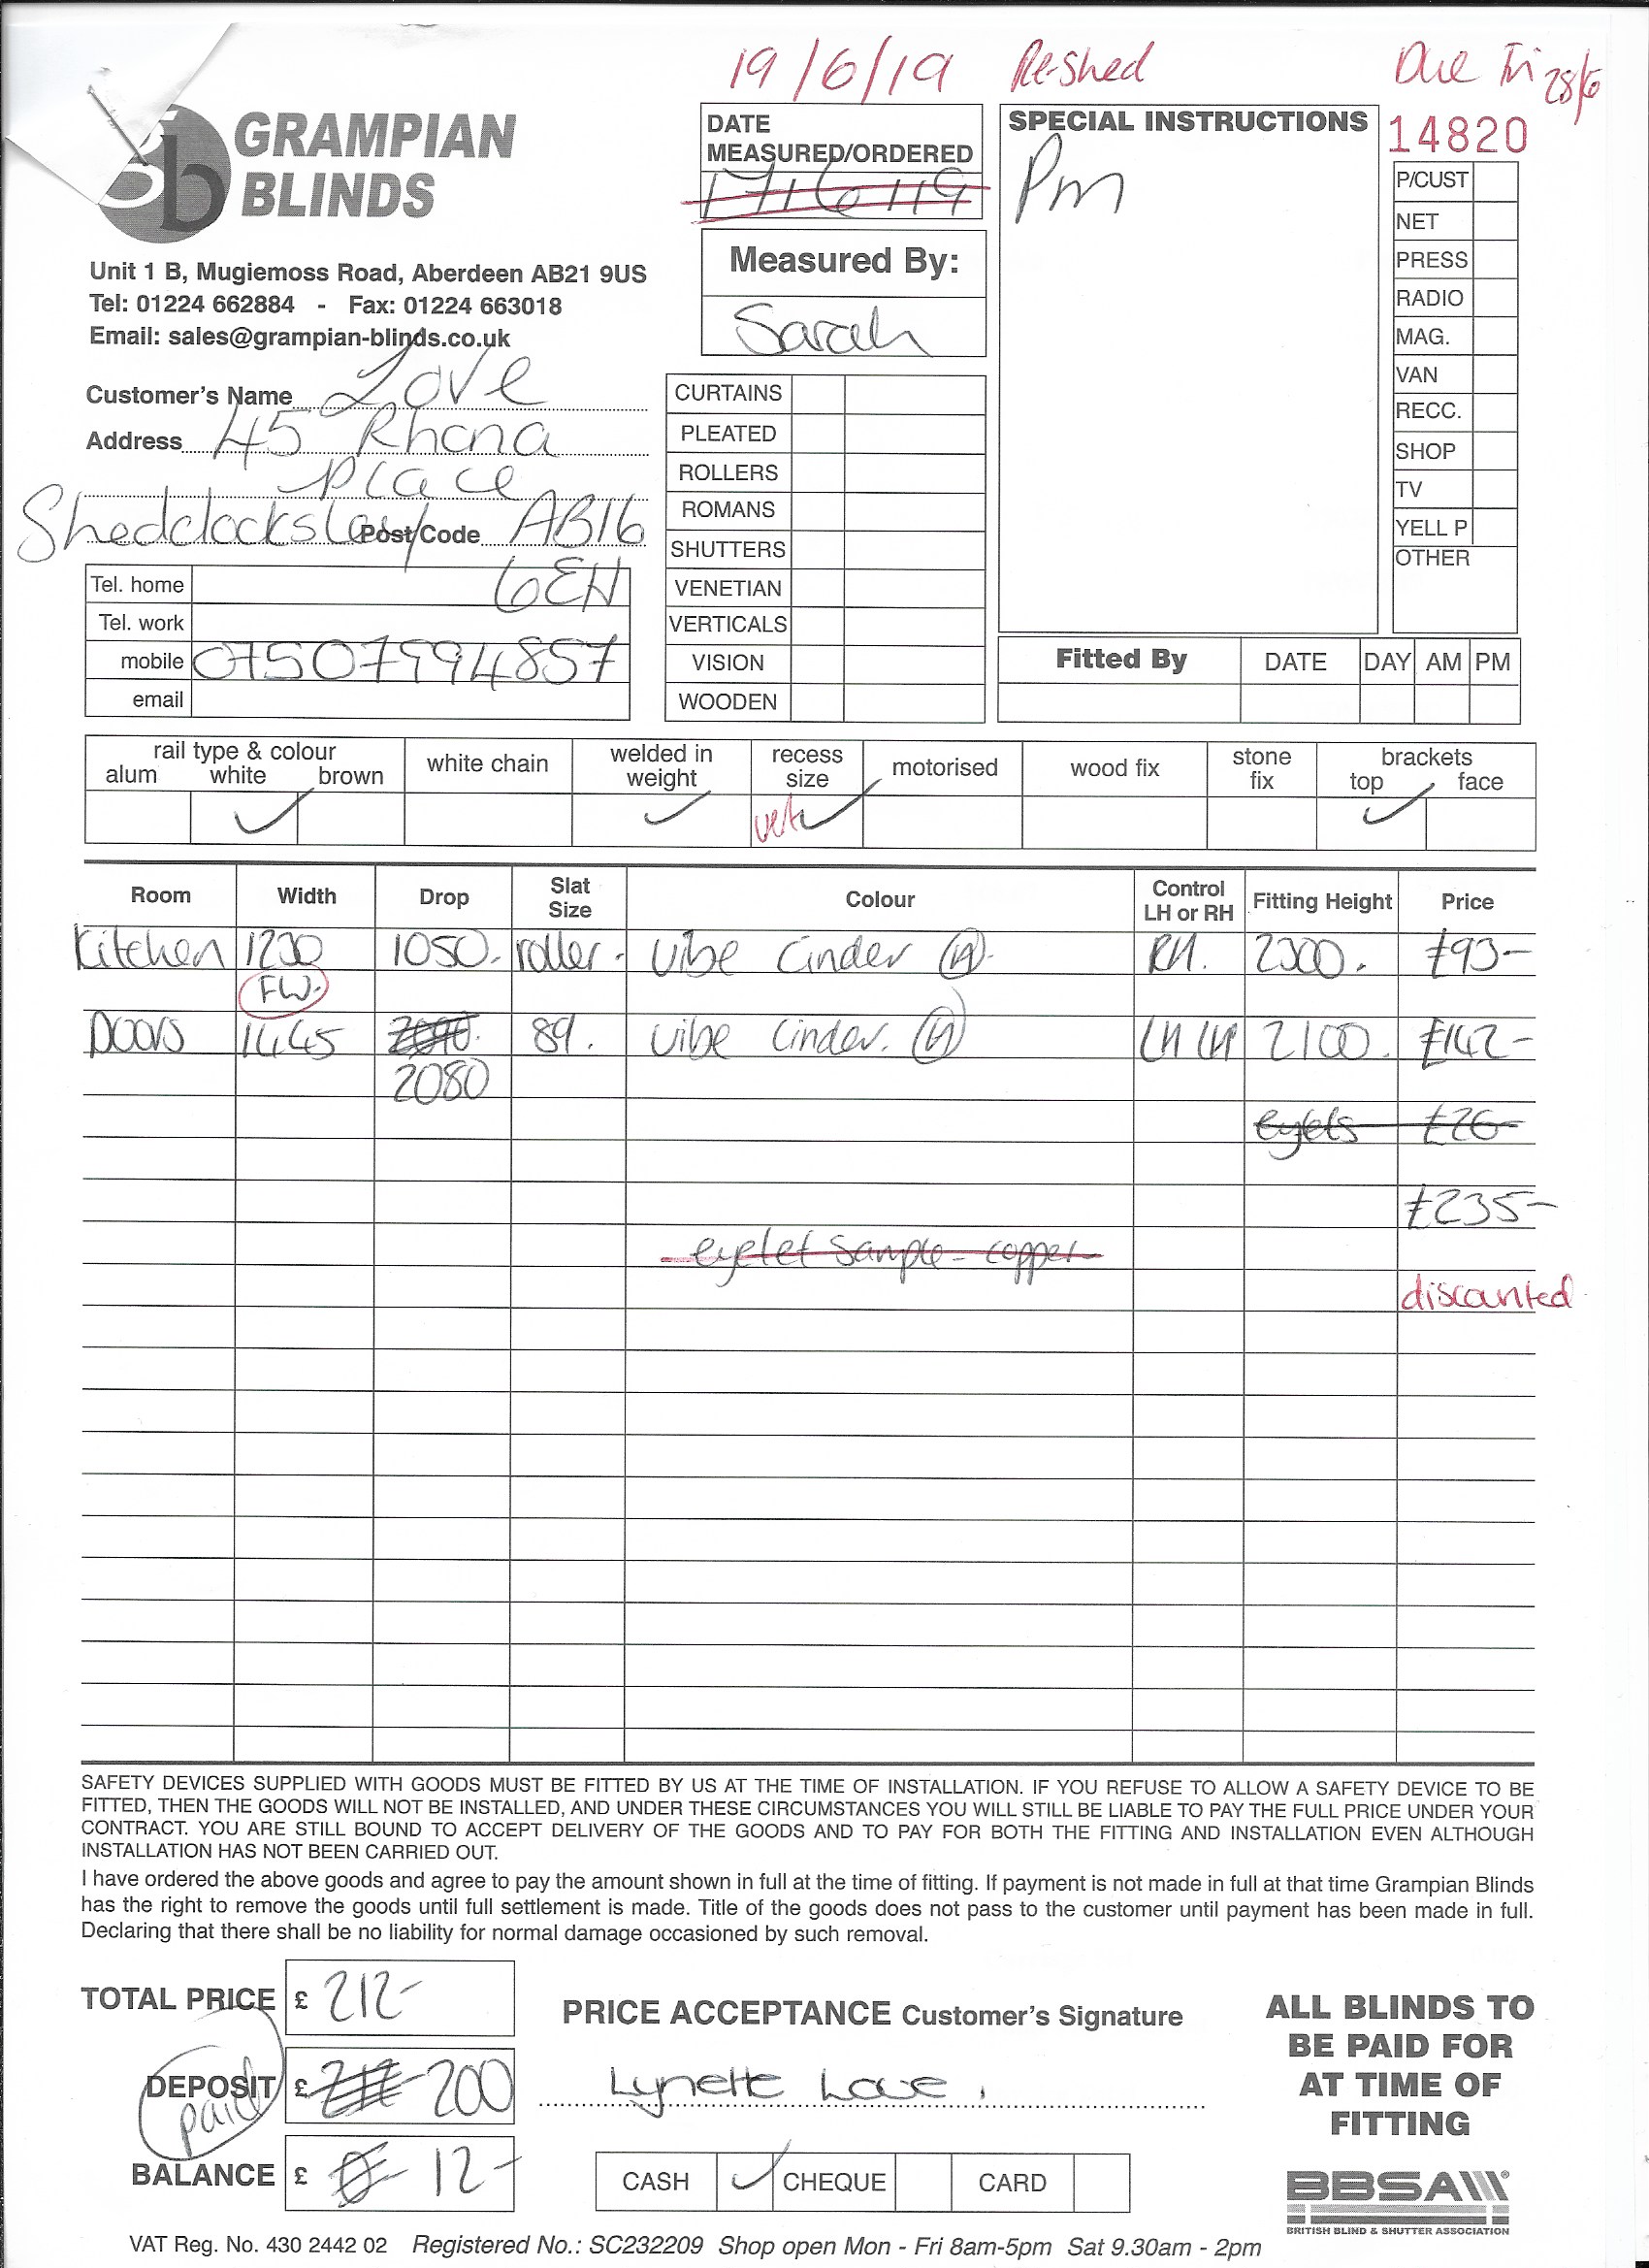 19/6/19 Re-Shed Due Fri 28/6
GRAMPIAN
BLINDS
Unit 1 B, Mugiemoss Road, Aberdeen AB21 9US
Tel: 01224 662884 - Fax: 01224 663018
Email: sales@grampian-blinds.co.uk
Customer's Name Love
Address 45 Rhona
Place
Sheddocksley Post Code AB16
6EH
Tel. home
Tel. work
mobile 07507994857
email
DATE
MEASURED/ORDERED
17/6/19
Measured By:
Sarah
CURTAINS
PLEATED
ROLLERS
ROMANS
SHUTTERS
VENETIAN
VERTICALS
VISION
WOODEN
SPECIAL INSTRUCTIONS
Pm
14820
P/CUST
NET
PRESS
RADIO
MAG.
VAN
RECC.
SHOP
TV
YELL P
OTHER
Fitted By DATE DAY AM PM
rail type & colour
alum white brown
white chain
welded in
weight
recess
size
motorised
wood fix
stone
fix
brackets
top face
Room Width Drop Slat Size Colour Control LH or RH Fitting Height Price
Kitchen 1230 1050. roller. Vibe Cinder RH. 2300. £93-
FW.
Doors 1445 2090. 89. Vibe Cinder. LH LH 2100. £142-
2080
eyelets £26-
£235-
eyelet sample - copper
discounted
SAFETY DEVICES SUPPLIED WITH GOODS MUST BE FITTED BY US AT THE TIME OF INSTALLATION. IF YOU REFUSE TO ALLOW A SAFETY DEVICE TO BE
FITTED, THEN THE GOODS WILL NOT BE INSTALLED, AND UNDER THESE CIRCUMSTANCES YOU WILL STILL BE LIABLE TO PAY THE FULL PRICE UNDER YOUR
CONTRACT. YOU ARE STILL BOUND TO ACCEPT DELIVERY OF THE GOODS AND TO PAY FOR BOTH THE FITTING AND INSTALLATION EVEN ALTHOUGH
INSTALLATION HAS NOT BEEN CARRIED OUT.
I have ordered the above goods and agree to pay the amount shown in full at the time of fitting. If payment is not made in full at that time Grampian Blinds
has the right to remove the goods until full settlement is made. Title of the goods does not pass to the customer until payment has been made in full.
Declaring that there shall be no liability for normal damage occasioned by such removal.
TOTAL PRICE £ 212-
DEPOSIT £ 200
paid
BALANCE £ 12-
PRICE ACCEPTANCE Customer's Signature
Lynette Love.
CASH CHEQUE CARD
ALL BLINDS TO
BE PAID FOR
AT TIME OF
FITTING
BBSA
BRITISH BLIND & SHUTTER ASSOCIATION
VAT Reg. No. 430 2442 02 Registered No.: SC232209 Shop open Mon - Fri 8am-5pm Sat 9.30am - 2pm